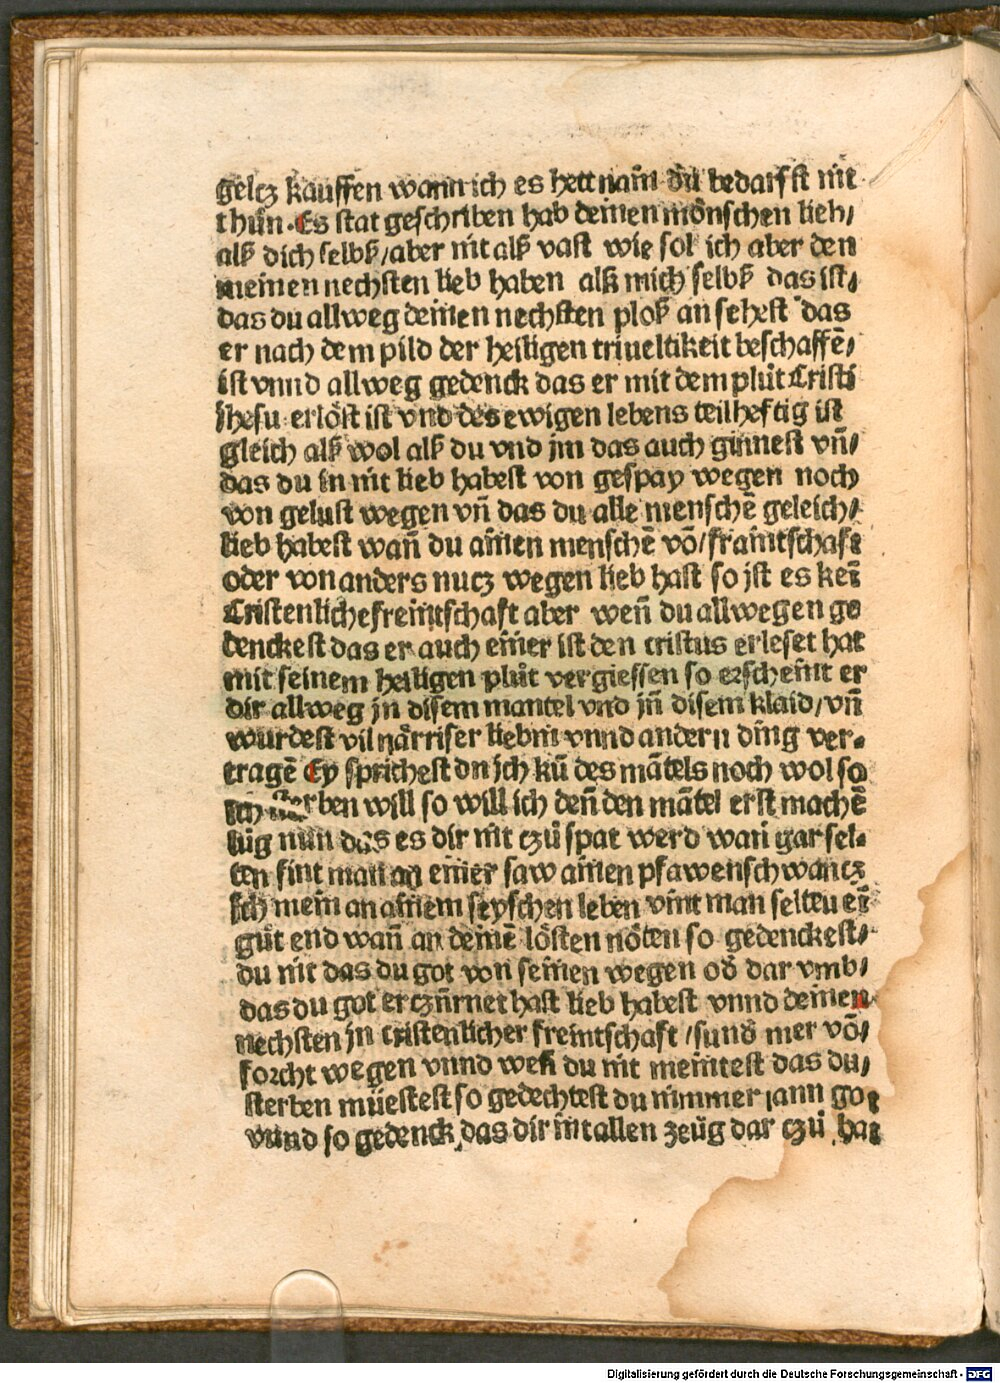 geltz kauffen wann ich es hett nain du bedarfst nit
thůn. Es stat geschriben hab deinen mönschen lieb/
alß dich selbß/aber nit alß vast wie sol ich aber den
meinen nechsten lieb haben alß mich selbß das ist/
das du allweg deinen nechsten ploß an sehest das
er nach dem pild der heiligen triueltikeit beschaffē/
ist vnnd allweg gedenck das er mit dem plůt Cristi
Jhesu erlöst ist vnd des ewigen lebens teilheftig ist
gleich alß wol alß du vnd jm das auch ginnest vn̄/
das du in nit lieb habest von gespay wegen noch
von gelust wegen vn̄ das du alle menschē geleich/
lieb habest wan̄ du ainen menschē vō/fraintschaft
oder von anders nutz wegen lieb hast so jst es keī
Cristenliche freintschaft aber wen̄ du allwegen ge
denckest das er auch einer ist den cristus erleset hat
mit seinem heiligen plůt vergiessen so erscheint er
dir allweg jn disem mantel vnd jn̄ disem klaid/vn̄
wurdest vil närriser liebin vnnd andern ding ver-
tragē Ey sprichest du jch kū des mātels noch wol so
ich sterben will so will ich den̄ den mātel erst machē
lůg nun das es dir nit czů spat werd wan gar sel-
ten fint man an einer saw ainen pfawenschwancz
Ich mein an ainem seyschen leben vint man selten eī
gůt end wan̄ an deinē lösten nöten so gedenckest/
du nit das du got von seinen wegen od dar vmb/
das du got erczürnet hast lieb habest vnnd deinen
nechsten jn cristenlicher freintschaft/sund mer vō/
forcht wegen vnnd wen̄ du nit meintest das du/
sterben müestest so gedechtest du nimmer jann got
vnnd so gedenck das dir nit allen zeüg dar czů hat
Digitalisierung gefördert durch die Deutsche Forschungsgemeinschaft - DFG